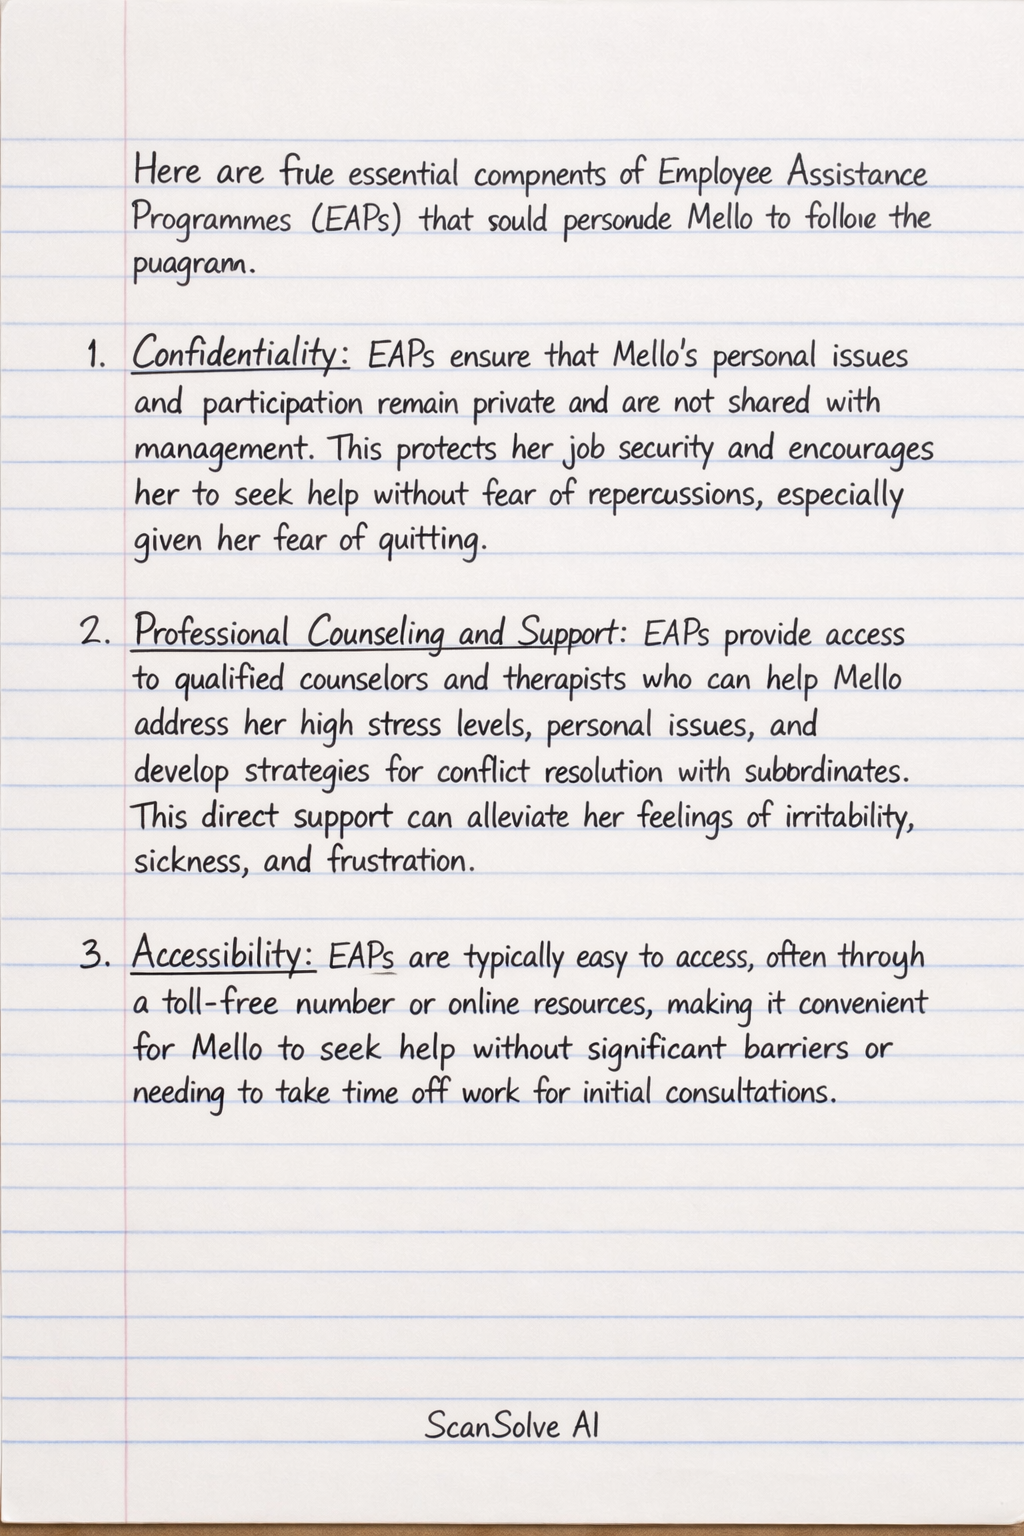 Here are frue essential compnents of Employee Assistance
Programmes (EAPs) that sould personude Mello to follow the
puagram.
1. Confidentiality: EAPs ensure that Mello's personal issues
and participation remain private and are not shared with
management. This protects her job security and encourages
her to seek help without fear of repercussions, especially
given her fear of quitting.
2. Professional Counseling and Support: EAPs provide access
to qualified counselors and therapists who can help Mello
address her high stress levels, personal issues, and
develop strategies for conflict resolution with subordinates.
This direct support can alleviate her feelings of irritability,
sickness, and frustration.
3. Accessibility: EAPs are typically easy to access, often through
a toll-free number or online resources, making it convenient
for Mello to seek help without significant barriers or
needing to take time off work for initial consultations.
ScanSolve AI